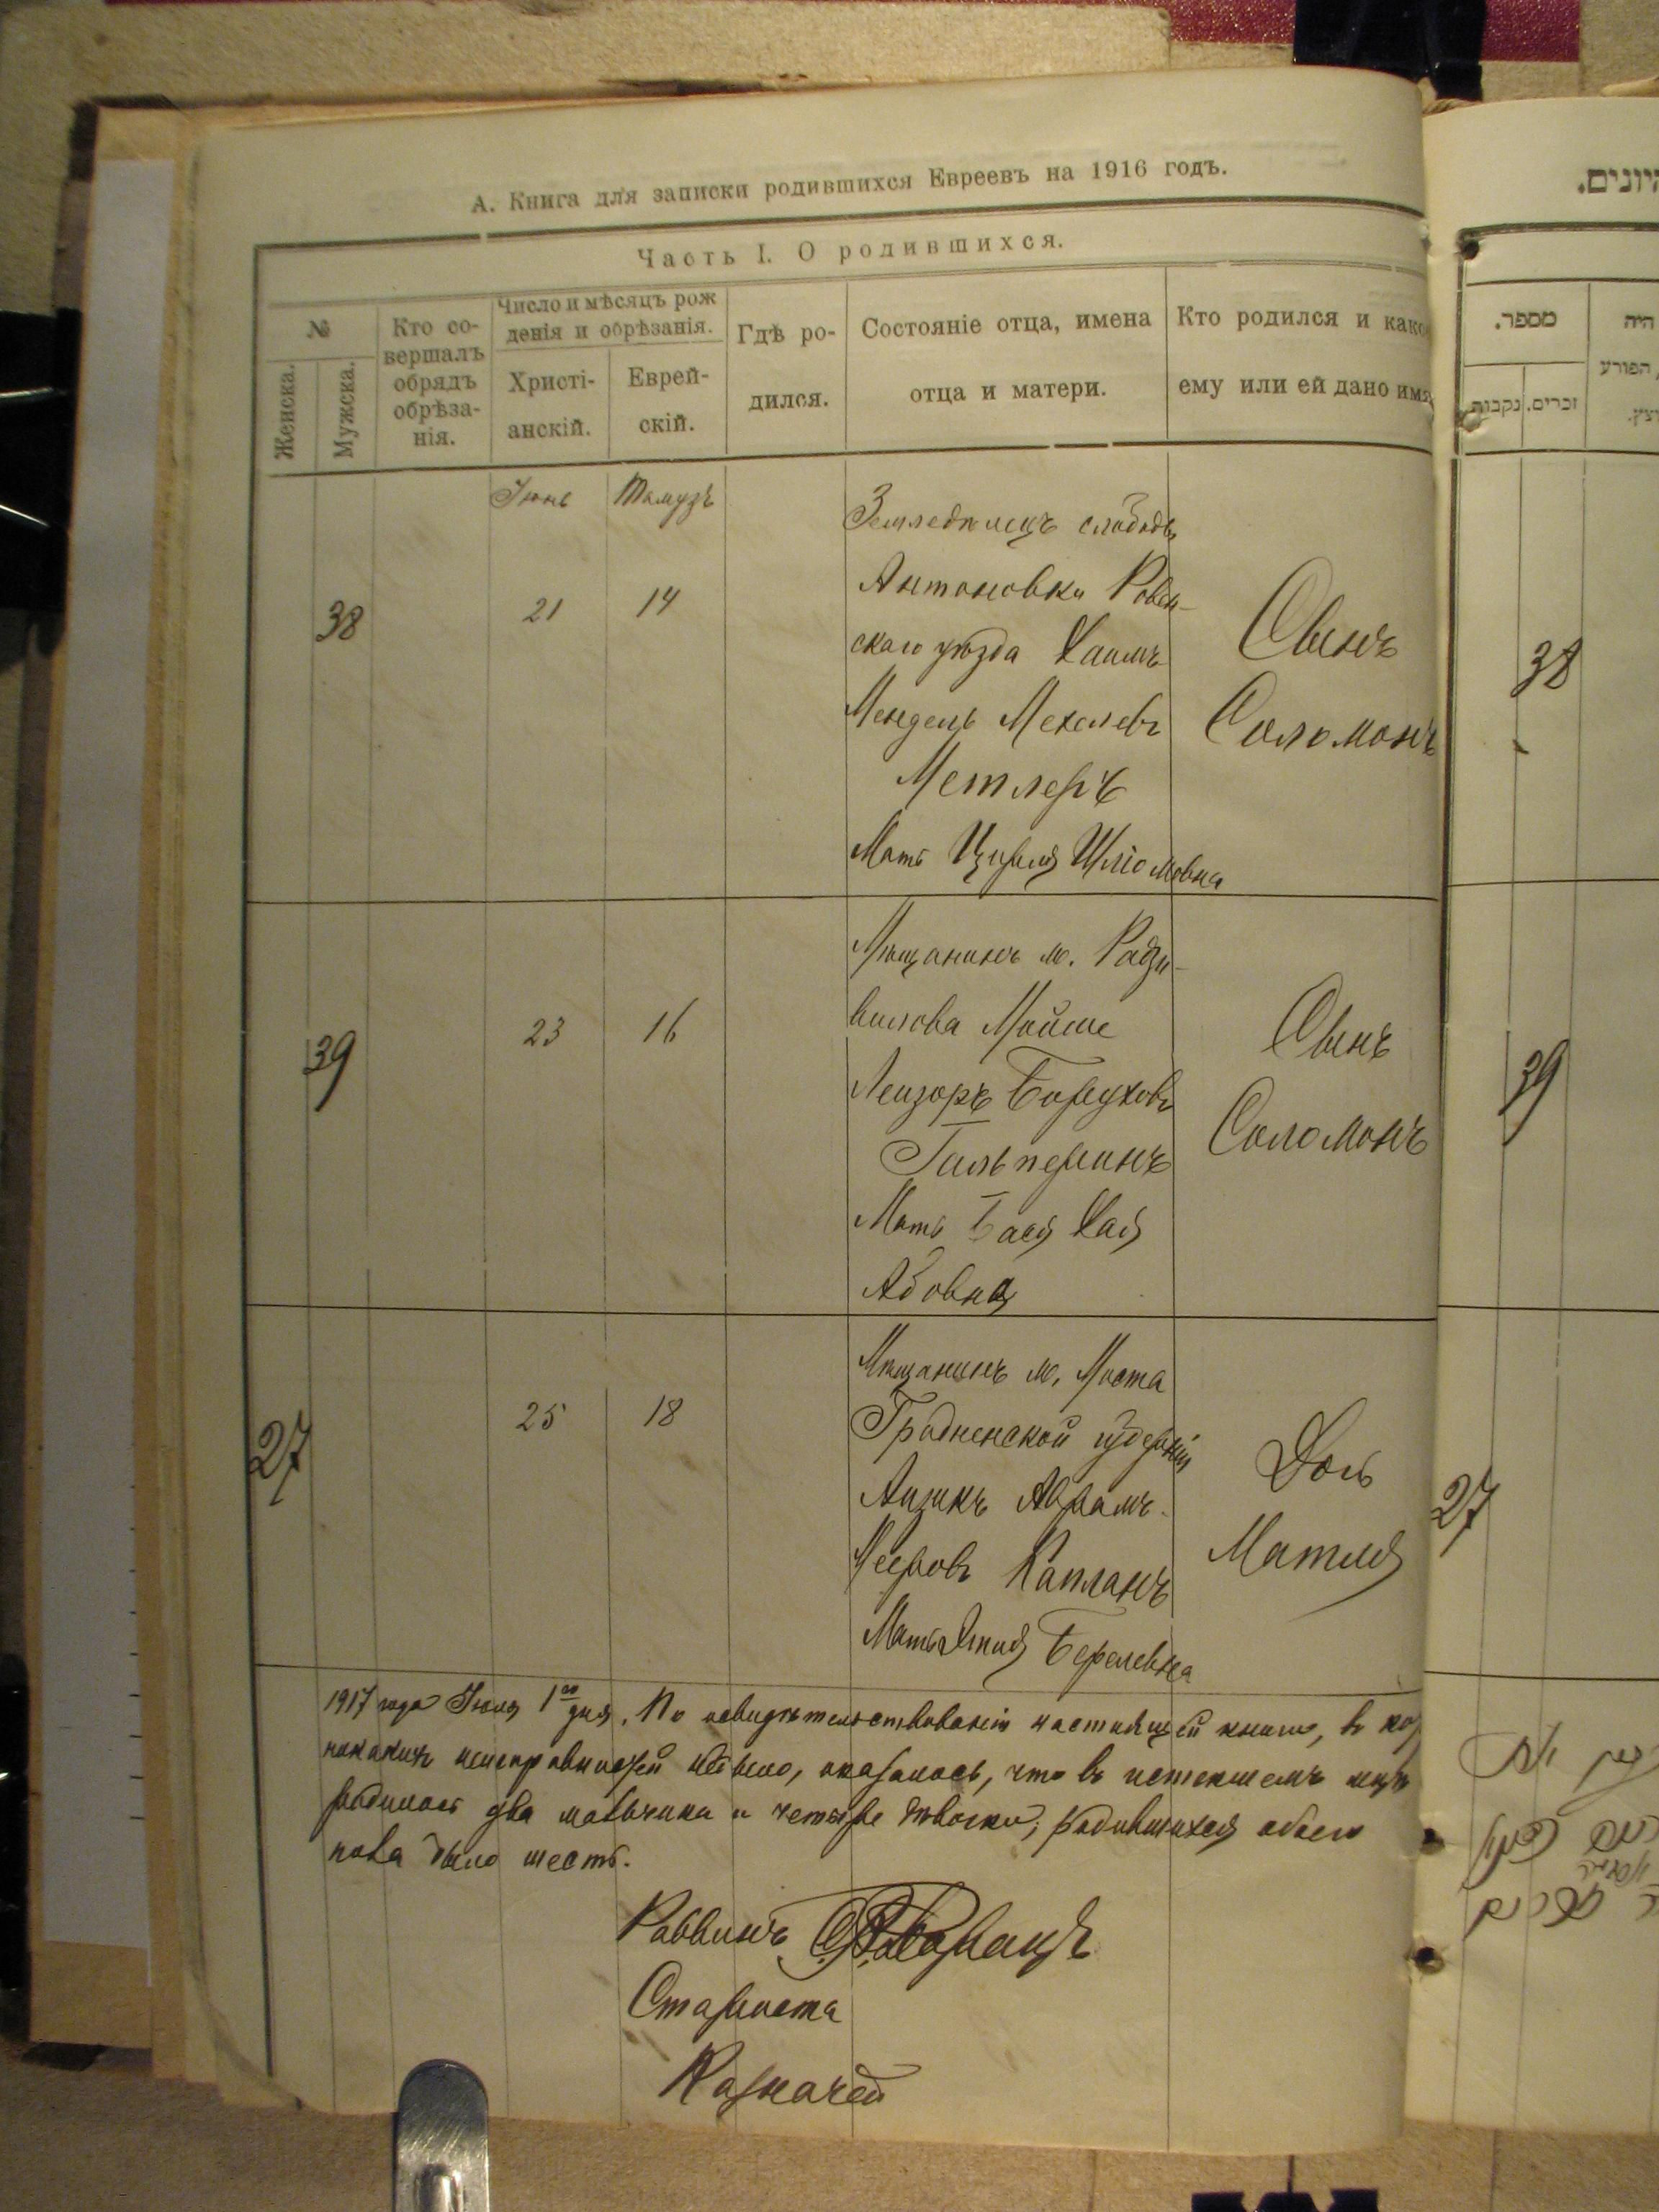 А. Книга для записки родившихся Евреевъ на 1916 годъ.
Часть I. О родившихся.
№
Женска.
Мужска.
Кто со-
вершалъ
обрядъ
обрѣза-
нія.
Число и мѣсяцъ рож
денія и обрѣзанія.
Христі-
анскій.
Еврей-
скій.
Гдѣ ро-
дился.
Состояніе отца, имена
отца и матери.
Кто родился и како
ему или ей дано имя
Іюнь
Тамузъ
38
21
14
Земледѣлецъ слободы
Антоновки Ровен-
скаго уѣзда Хаимъ
Мендель Мехелевъ
Метлеръ
Мать Цирля Шліомовна
Сынъ
Соломонъ
39
23
16
Мѣщанинъ м. Радзи-
вилова Мойше
Лейзоръ Боруховъ
Гальперинъ
Мать Бася Хая
Абовна
Сынъ
Соломонъ
27
25
18
Мѣщанинъ м. Моста
Гродненской губерніи
Айзикъ Аврамъ
Мееровъ Капланъ
Мать Берелевна
Дочь
Матля
1917 года Іюля 1го дня. По освидѣтельствованіи настоящей книги, въ коей
никакихъ неисправностей не было, оказалось, что въ истекшемъ мцѣ
родилось два мальчика и четыре дѣвочки, родившихся обоего
пола было шесть.
Раввинъ
Староста
Казначей
היונים.
מספר.
זכרים.
נקבות
היה
הפורע
38
39
27